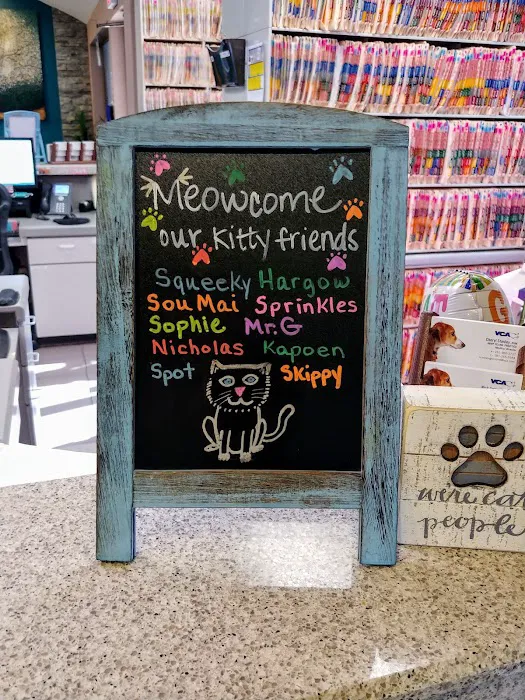 Meowcome
our Kitty friends
Squeeky Hargow
Sou Mai Sprinkles
Sophie Mr.G
Nicholas Kapoen
Spot Skippy
VCA
VCA
we're cat
people